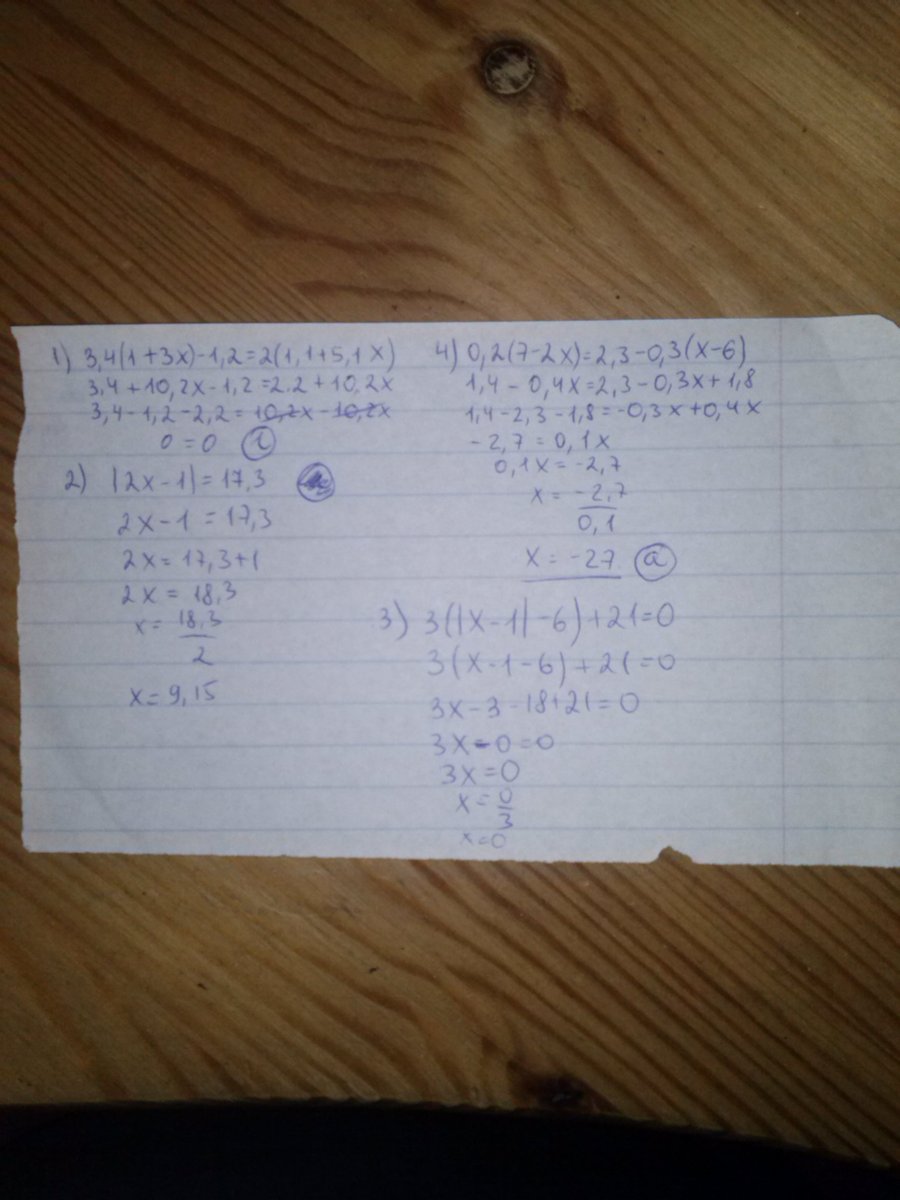 1) 3,4(1+3x)-1,2=2(1,1+5,1x)
3,4+10,2x-1,2=2.2+10.2x
3,4-1,2-2,2=10,2x-10,2x
0=0
2) |2x-1|=17,3
2x-1=17,3
2x=17,3+1
2x=18,3
x=18,3
2
x=9,15
4) 0,2(7-2x)=2,3-0,3(x-6)
1,4-0,4x=2,3-0,3x+1,8
1,4-2,3-1,8=-0,3x+0,4x
-2,7=0,1x
0,1x=-2,7
x=-2,7
0,1
x=-27 a
3) 3(|x-1|-6)+21=0
3(x-1-6)+21=0
3x-3-18+21=0
3x-0=0
3x=0
x=0
3
x=0